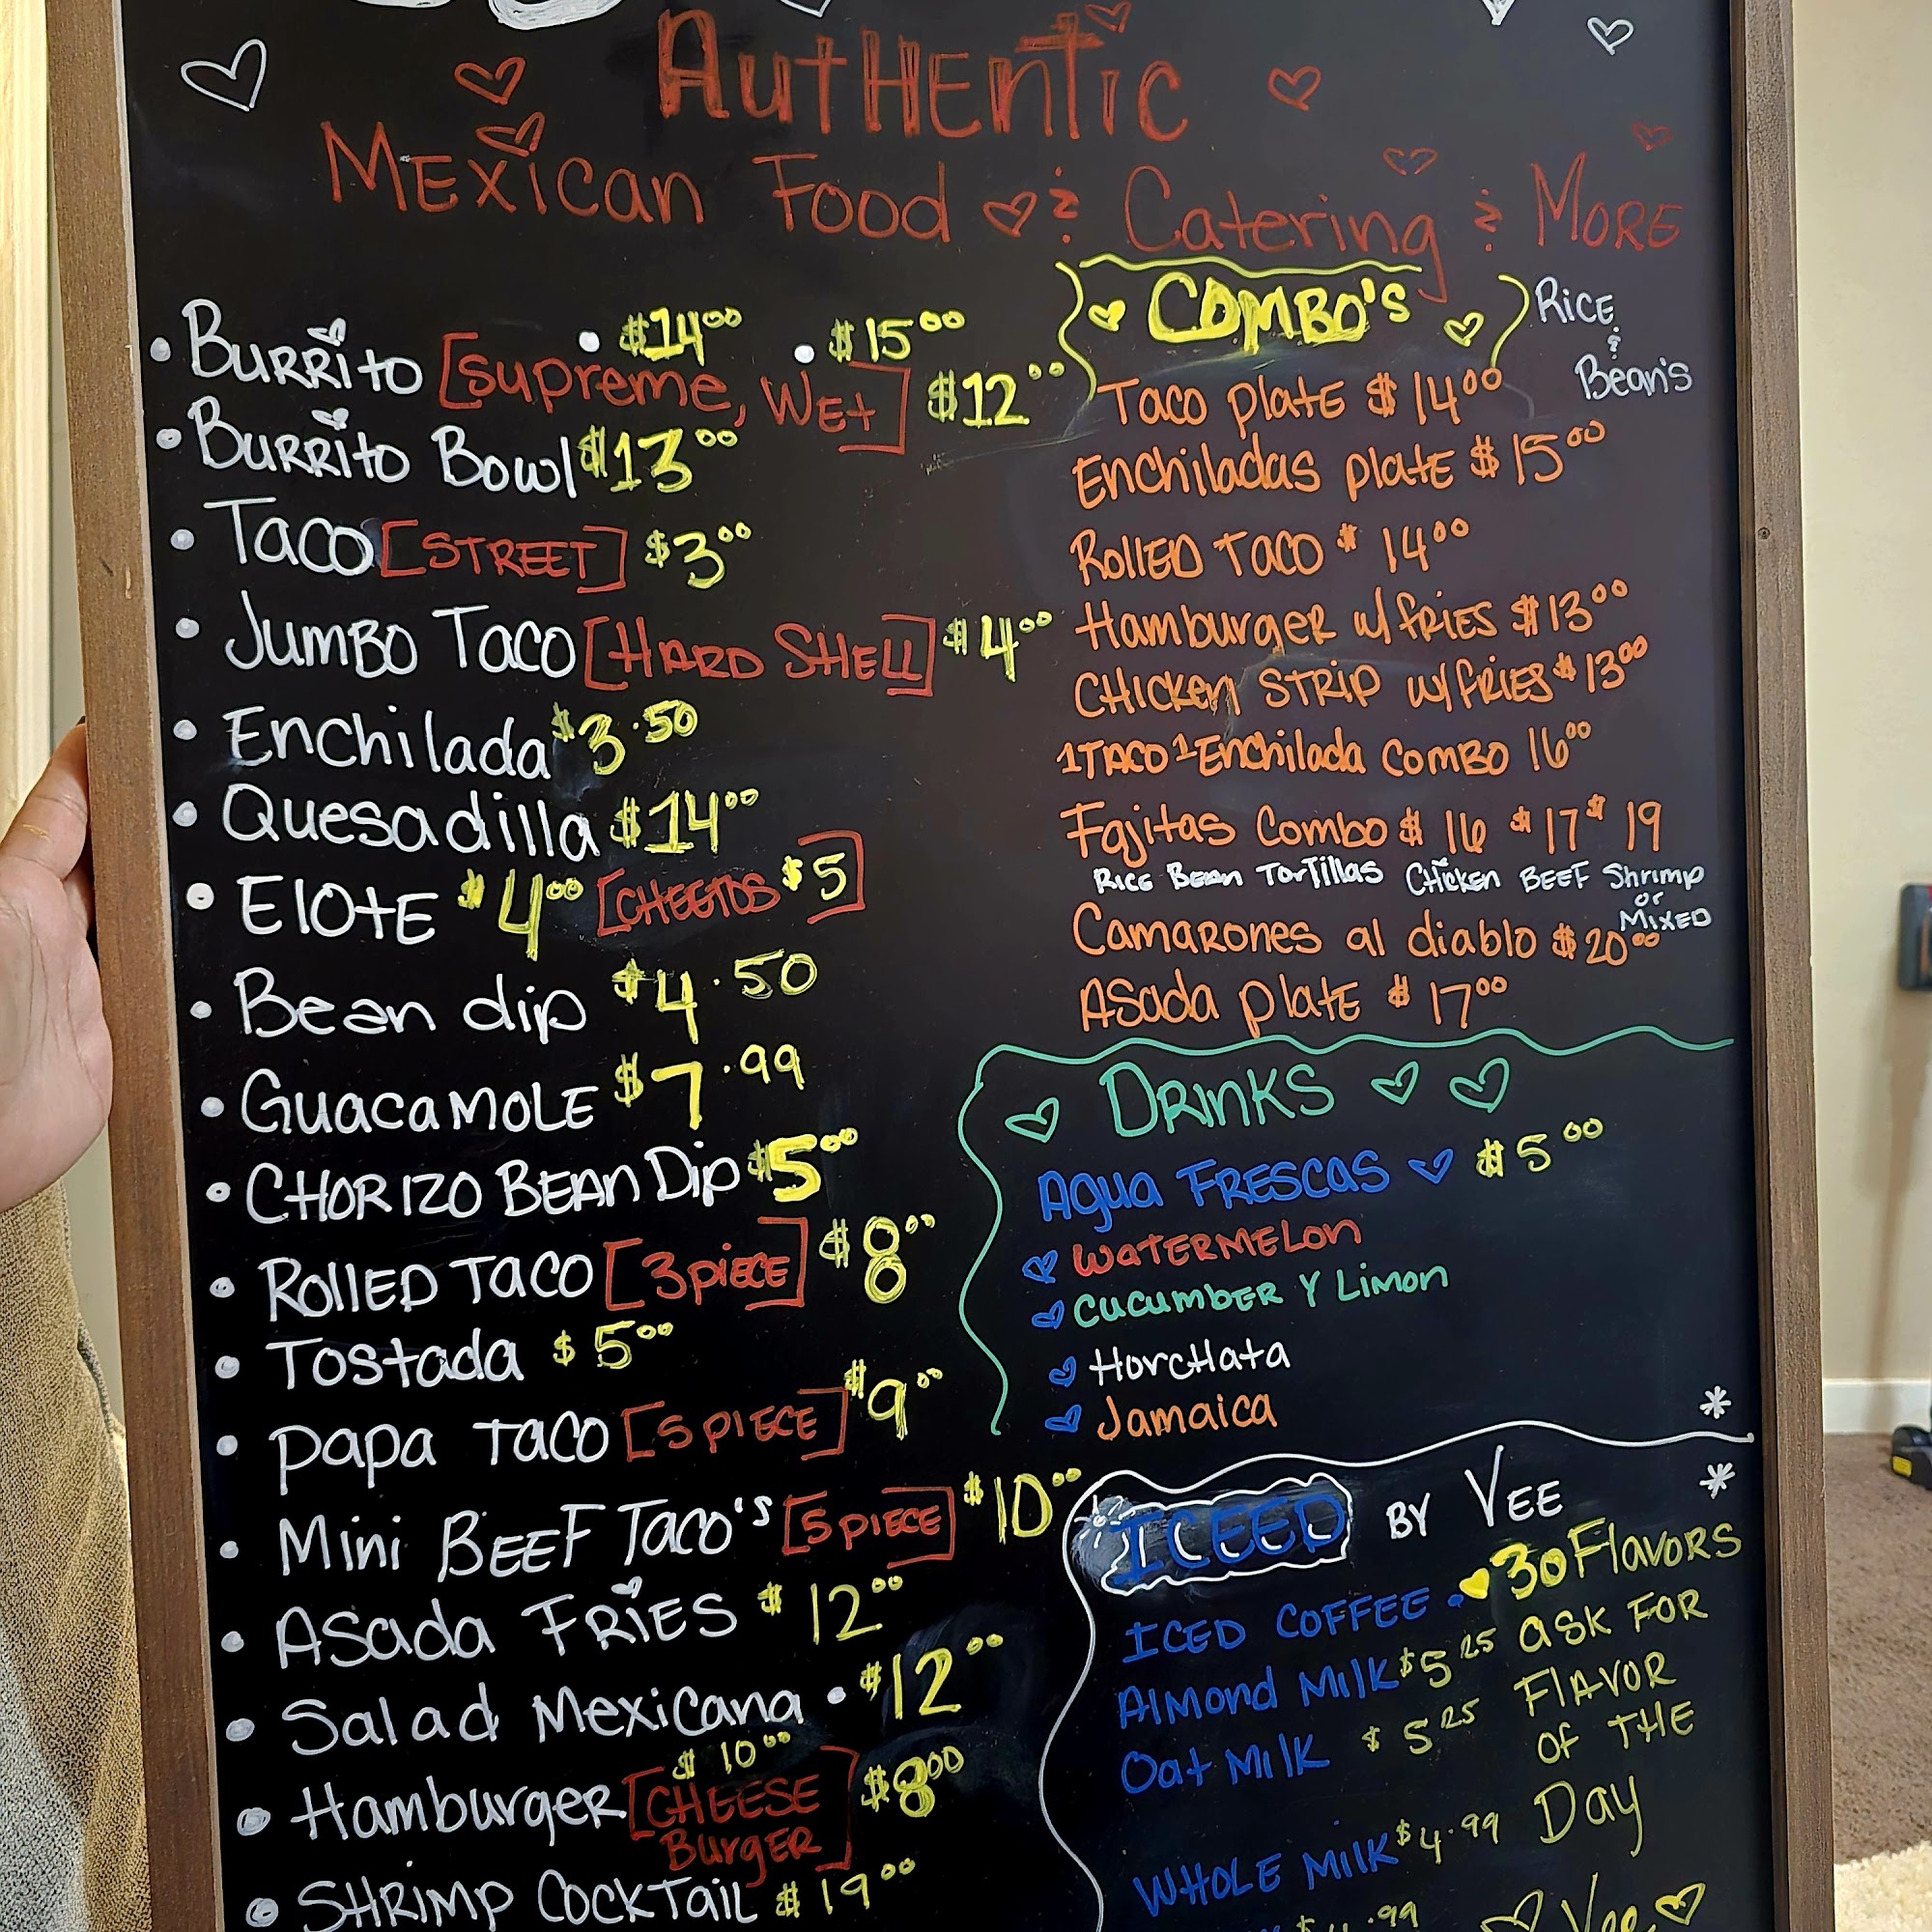 AuTHENTiC
MEXiCan Food & Catering & MORE
• BURRito [supreme, WEt] $12.00
• $14.00 • $15.00
• BURRito Bowl $13.00
• Taco [STREET] $3.00
• JumBO Taco [HARD SHEll] $4.00
• Enchilada $3.50
• Quesadilla $14.00
• ElOtE $4.00 [CHEETOS $5]
• Bean dip $4.50
• GuacaMOLE $7.99
• CHORIZO BEAn Dip $5.00
• ROllED TaCO [3 piECE] $8.00
• Tostada $5.00
• papa TaCO [5 PIECE] $9.00
• Mini BEEF TaCO's [5 PIECE] $10.00
• ASada FRiES $12.00
• Salad MexiCana • $12.00
• HamburgER [CHEESE BurgER $10.00] $8.00
• SHRiMp COCKTaiL $19.00
COMBO'S
RiCE & Bean's
Taco platE $14.00
EnChiladas platE $15.00
ROllED TaCO $14.00
HamburgER w/ fRiES $13.00
CHiCKEn STRip w/ fRiES $13.00
1 TACO 1 EnChilada COMBO 16.00
Fajitas COmbo $16 $17 $19
RiCE BEan TorTillas ChiCKEn BEEF Shrimp or MiXED
CamaRONES al diablo $20.00
ASada platE $17.00
DRinKS
Agua FRESCaS $5.00
WaTERMELon
CuCumbER Y Limon
HorcHata
Jamaica
*
*
ICEED BY VEE
ICED COFFEE • 30 FlavoRS
AlMond MilK $5.25 aSK FOR
Oat MilK $5.25 FlAVOR
OF THE
Day
WHOLE MilK $4.99
$4.99 Vee